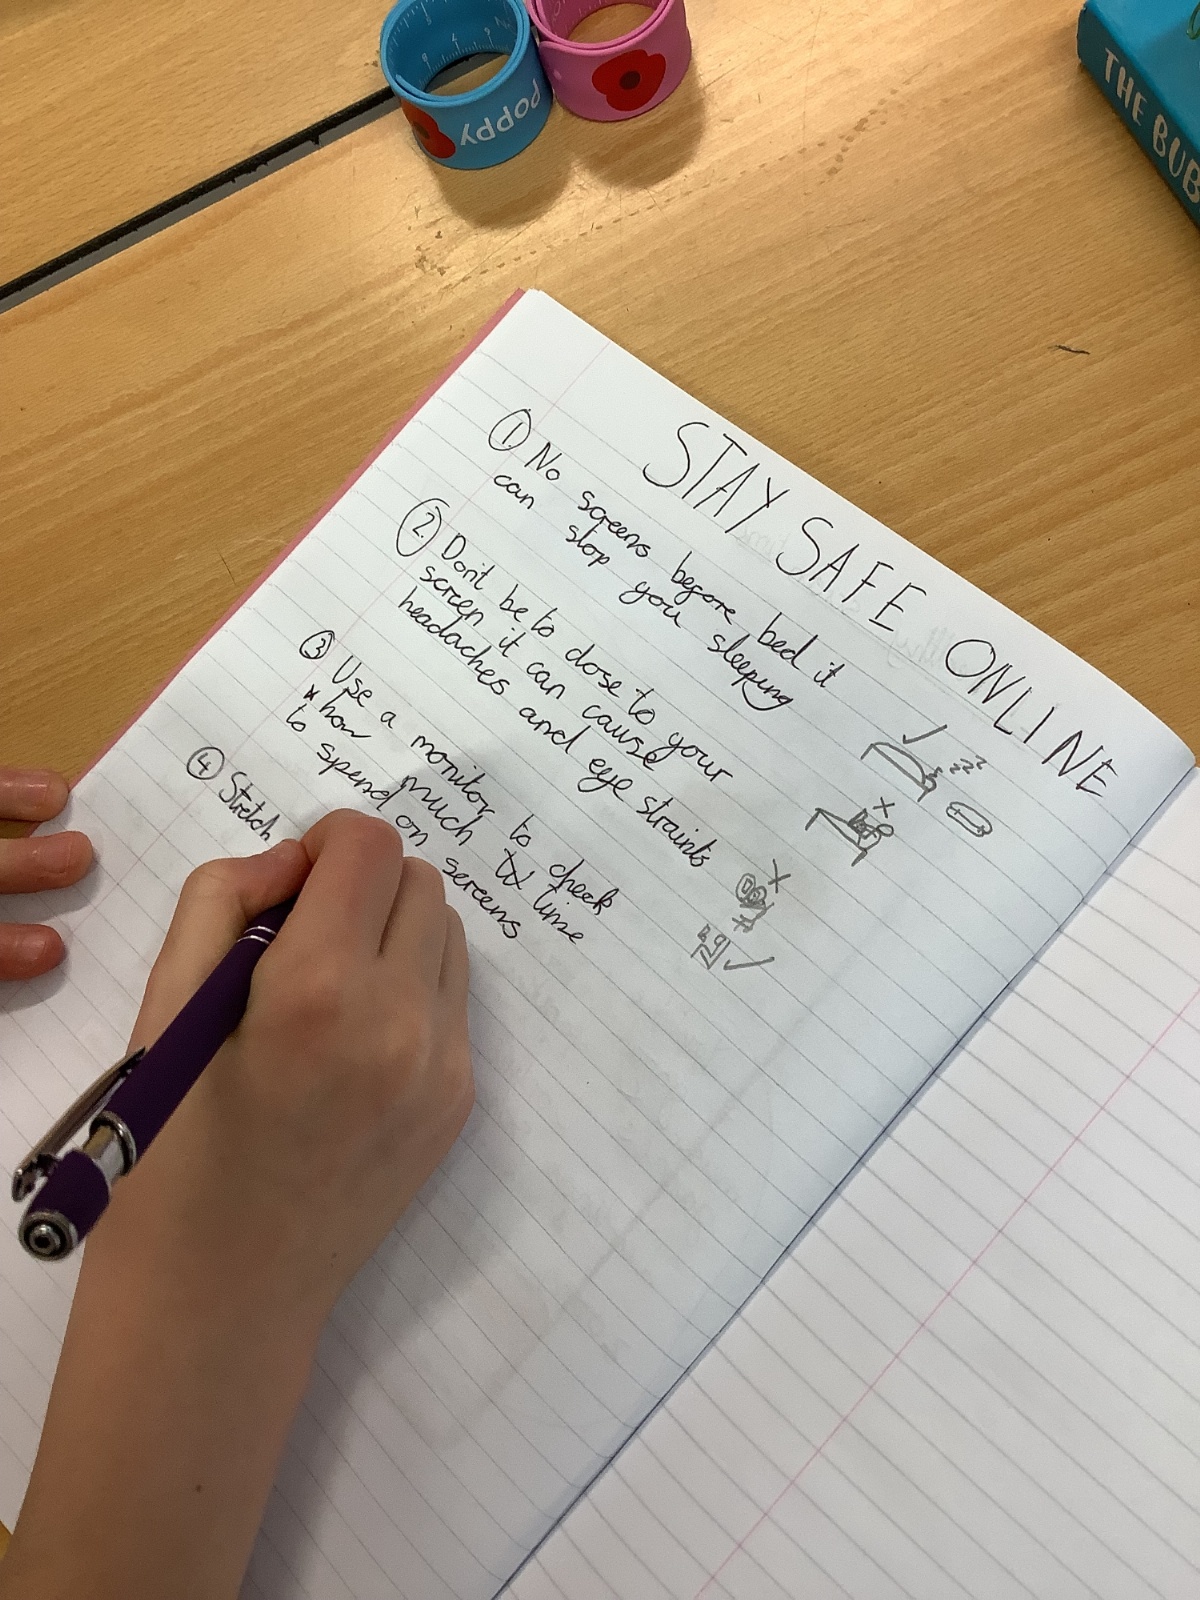 POPPY
THE BUB
STAY SAFE ONLINE
1 No screens before bed it
can stop you sleeping
2 Don't be to close to your
screen it can cause
headaches and eye straints
3 Use a monitor to check
how much time
to spend on screens
4 Stretch
zzz